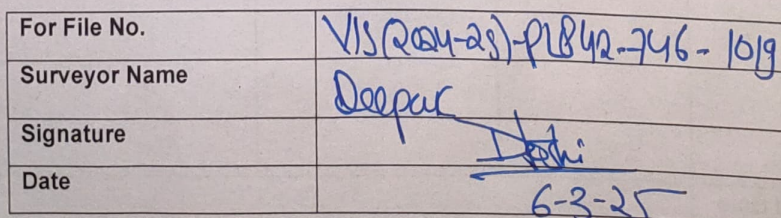 For File No. VIS(2024-25)-PL842-746-1019
Surveyor Name Deepak
Signature Joshi
Date 6-3-25